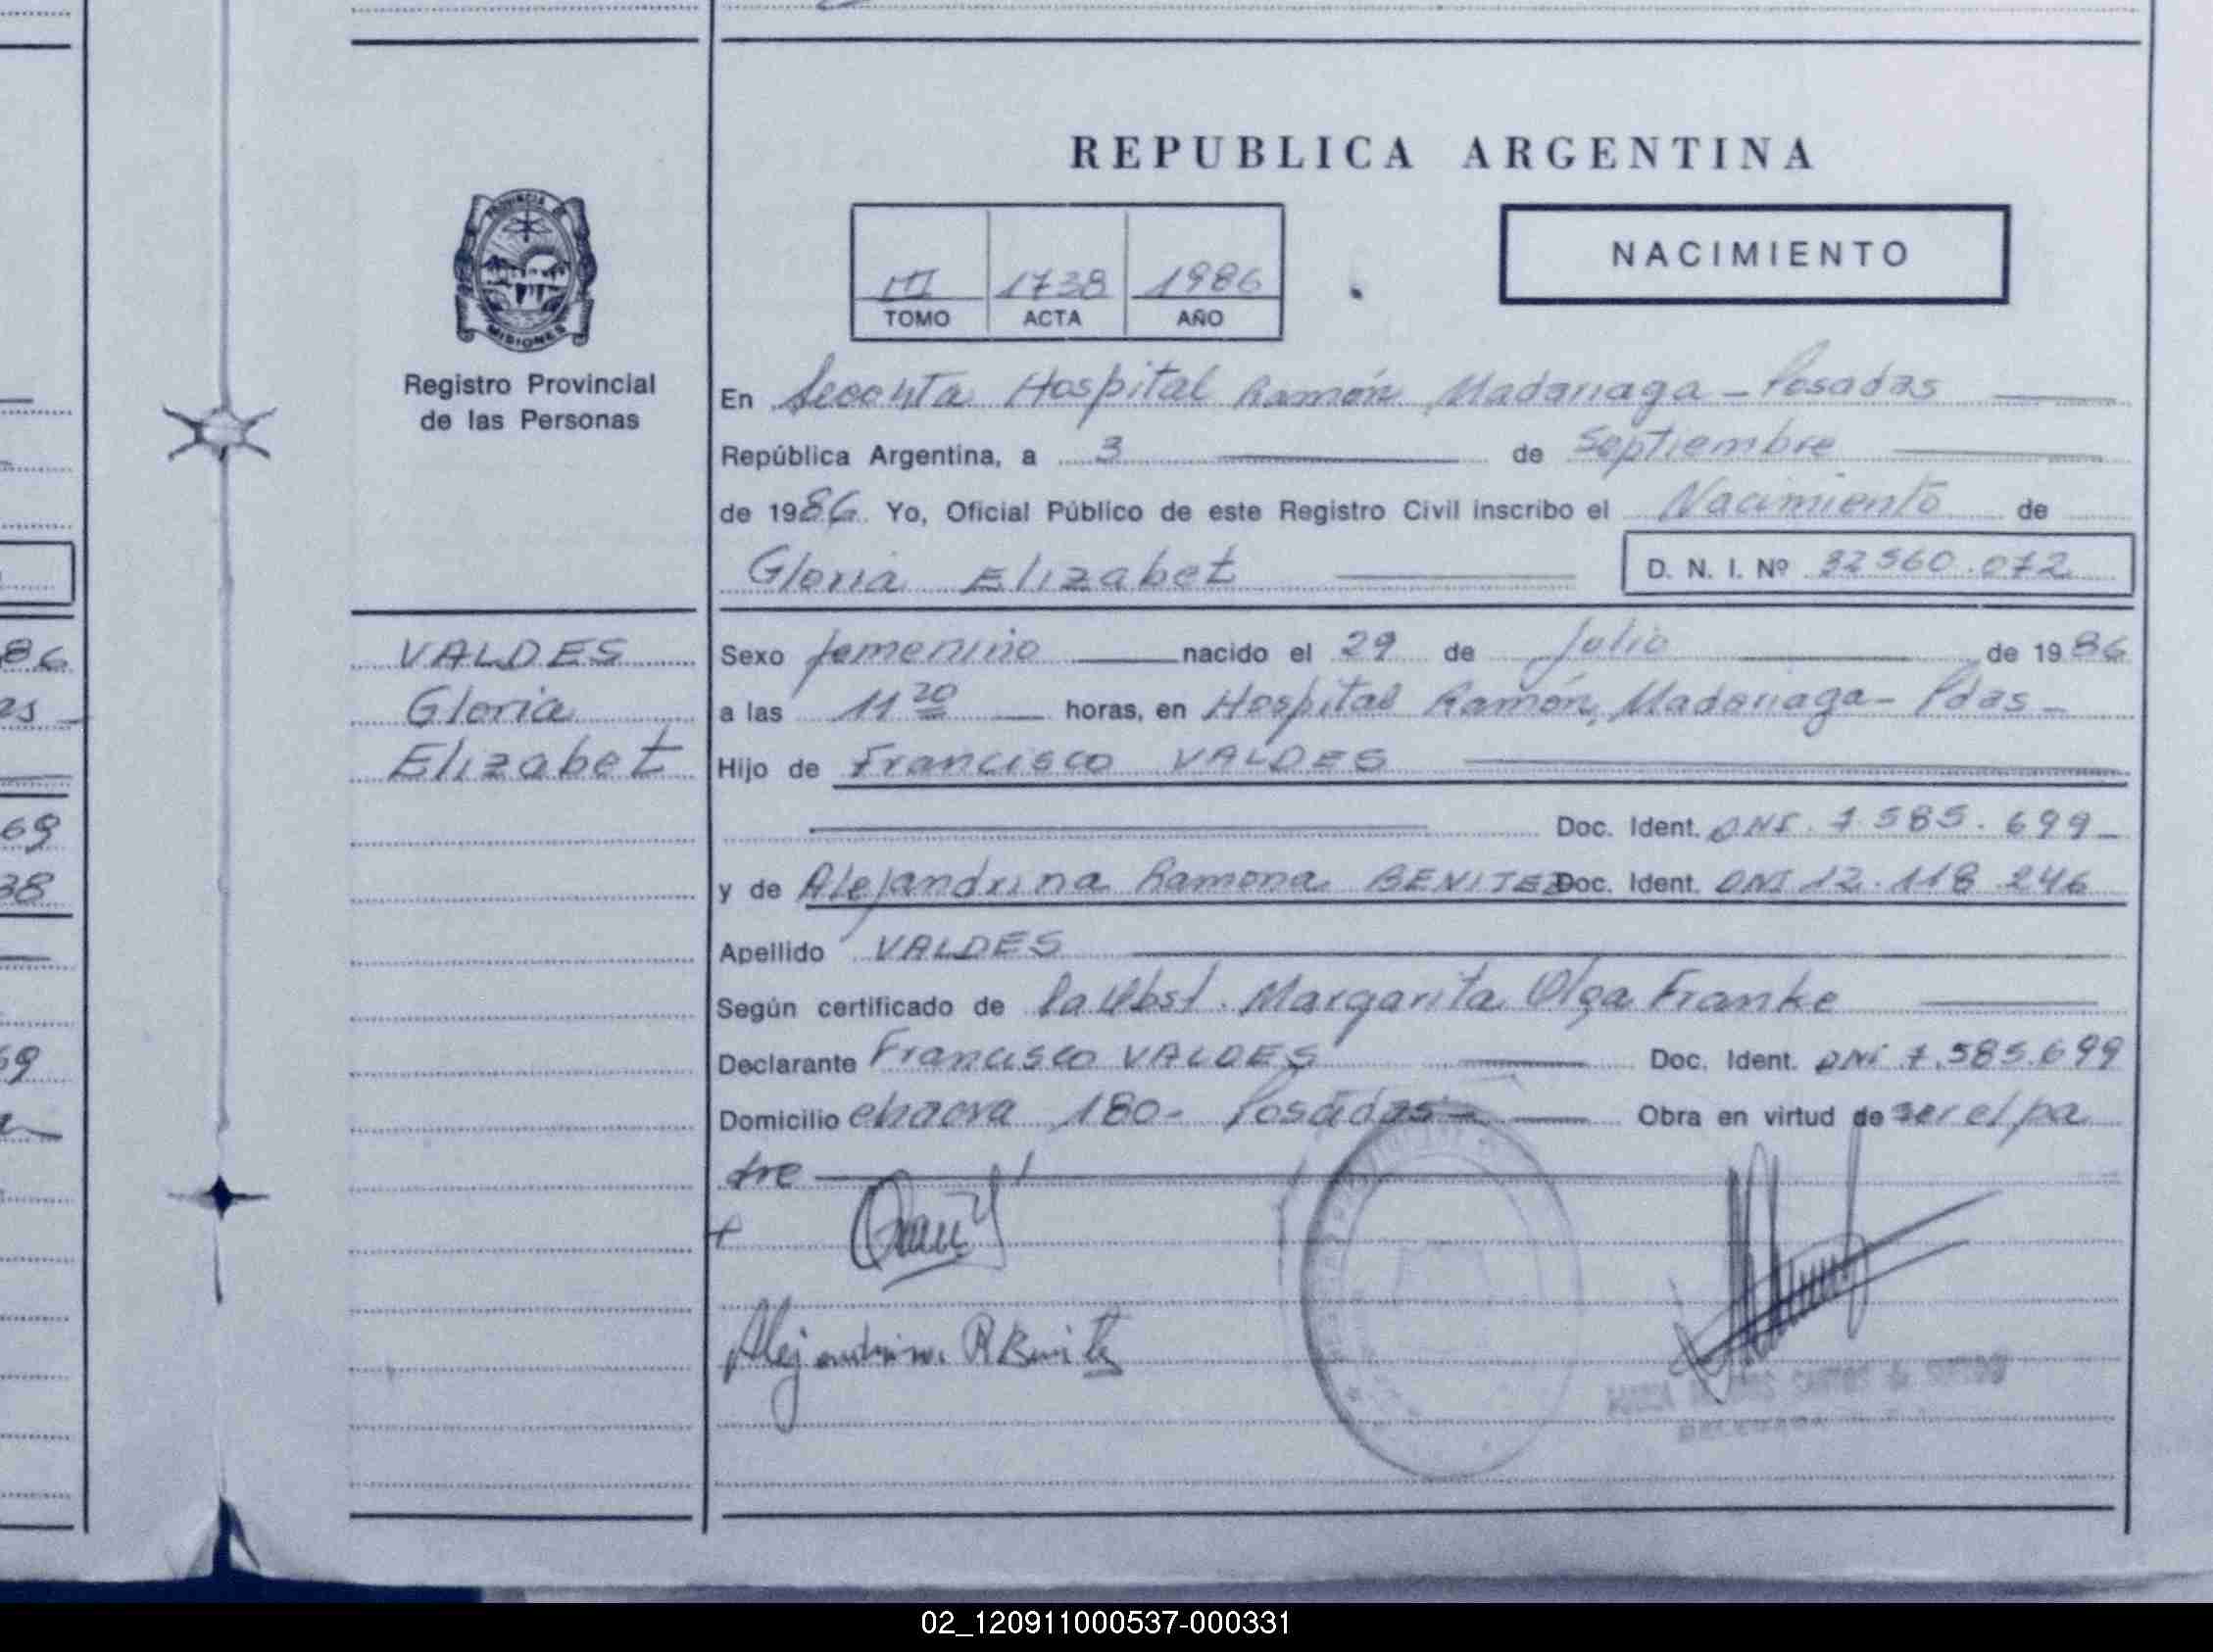 REPUBLICA ARGENTINA
PROVINCIA DE
MISIONES
Registro Provincial
de las Personas
III 1738 1986
TOMO ACTA AÑO
NACIMIENTO
En Hospital Ramón Madariaga - Posadas
República Argentina, a 3 de Septiembre
de 1986. Yo, Oficial Público de este Registro Civil inscribo el Nacimiento de
Gloria Elizabet D. N. I. Nº 32560.072
VALDES
Gloria
Elizabet
Sexo femenino nacido el 29 de Julio de 1986
a las 11 20 horas, en Hospital Ramón Madariaga - Pdas -
Hijo de Francisco VALDES
Doc. Ident. DNI. 7.585.699
y de Alejandrina Ramona BENITEZ Doc. Ident. DNI 12.118.246
Apellido VALDES
Según certificado de la Obst. Margarita Olga Franke
Declarante Francisco VALDES Doc. Ident. DNI 7.585.699
Domicilio chacra 180- Posadas - Obra en virtud de ser el pa
dre
Alejandrina R Benitez
86
69
38
69
02_120911000537-000331